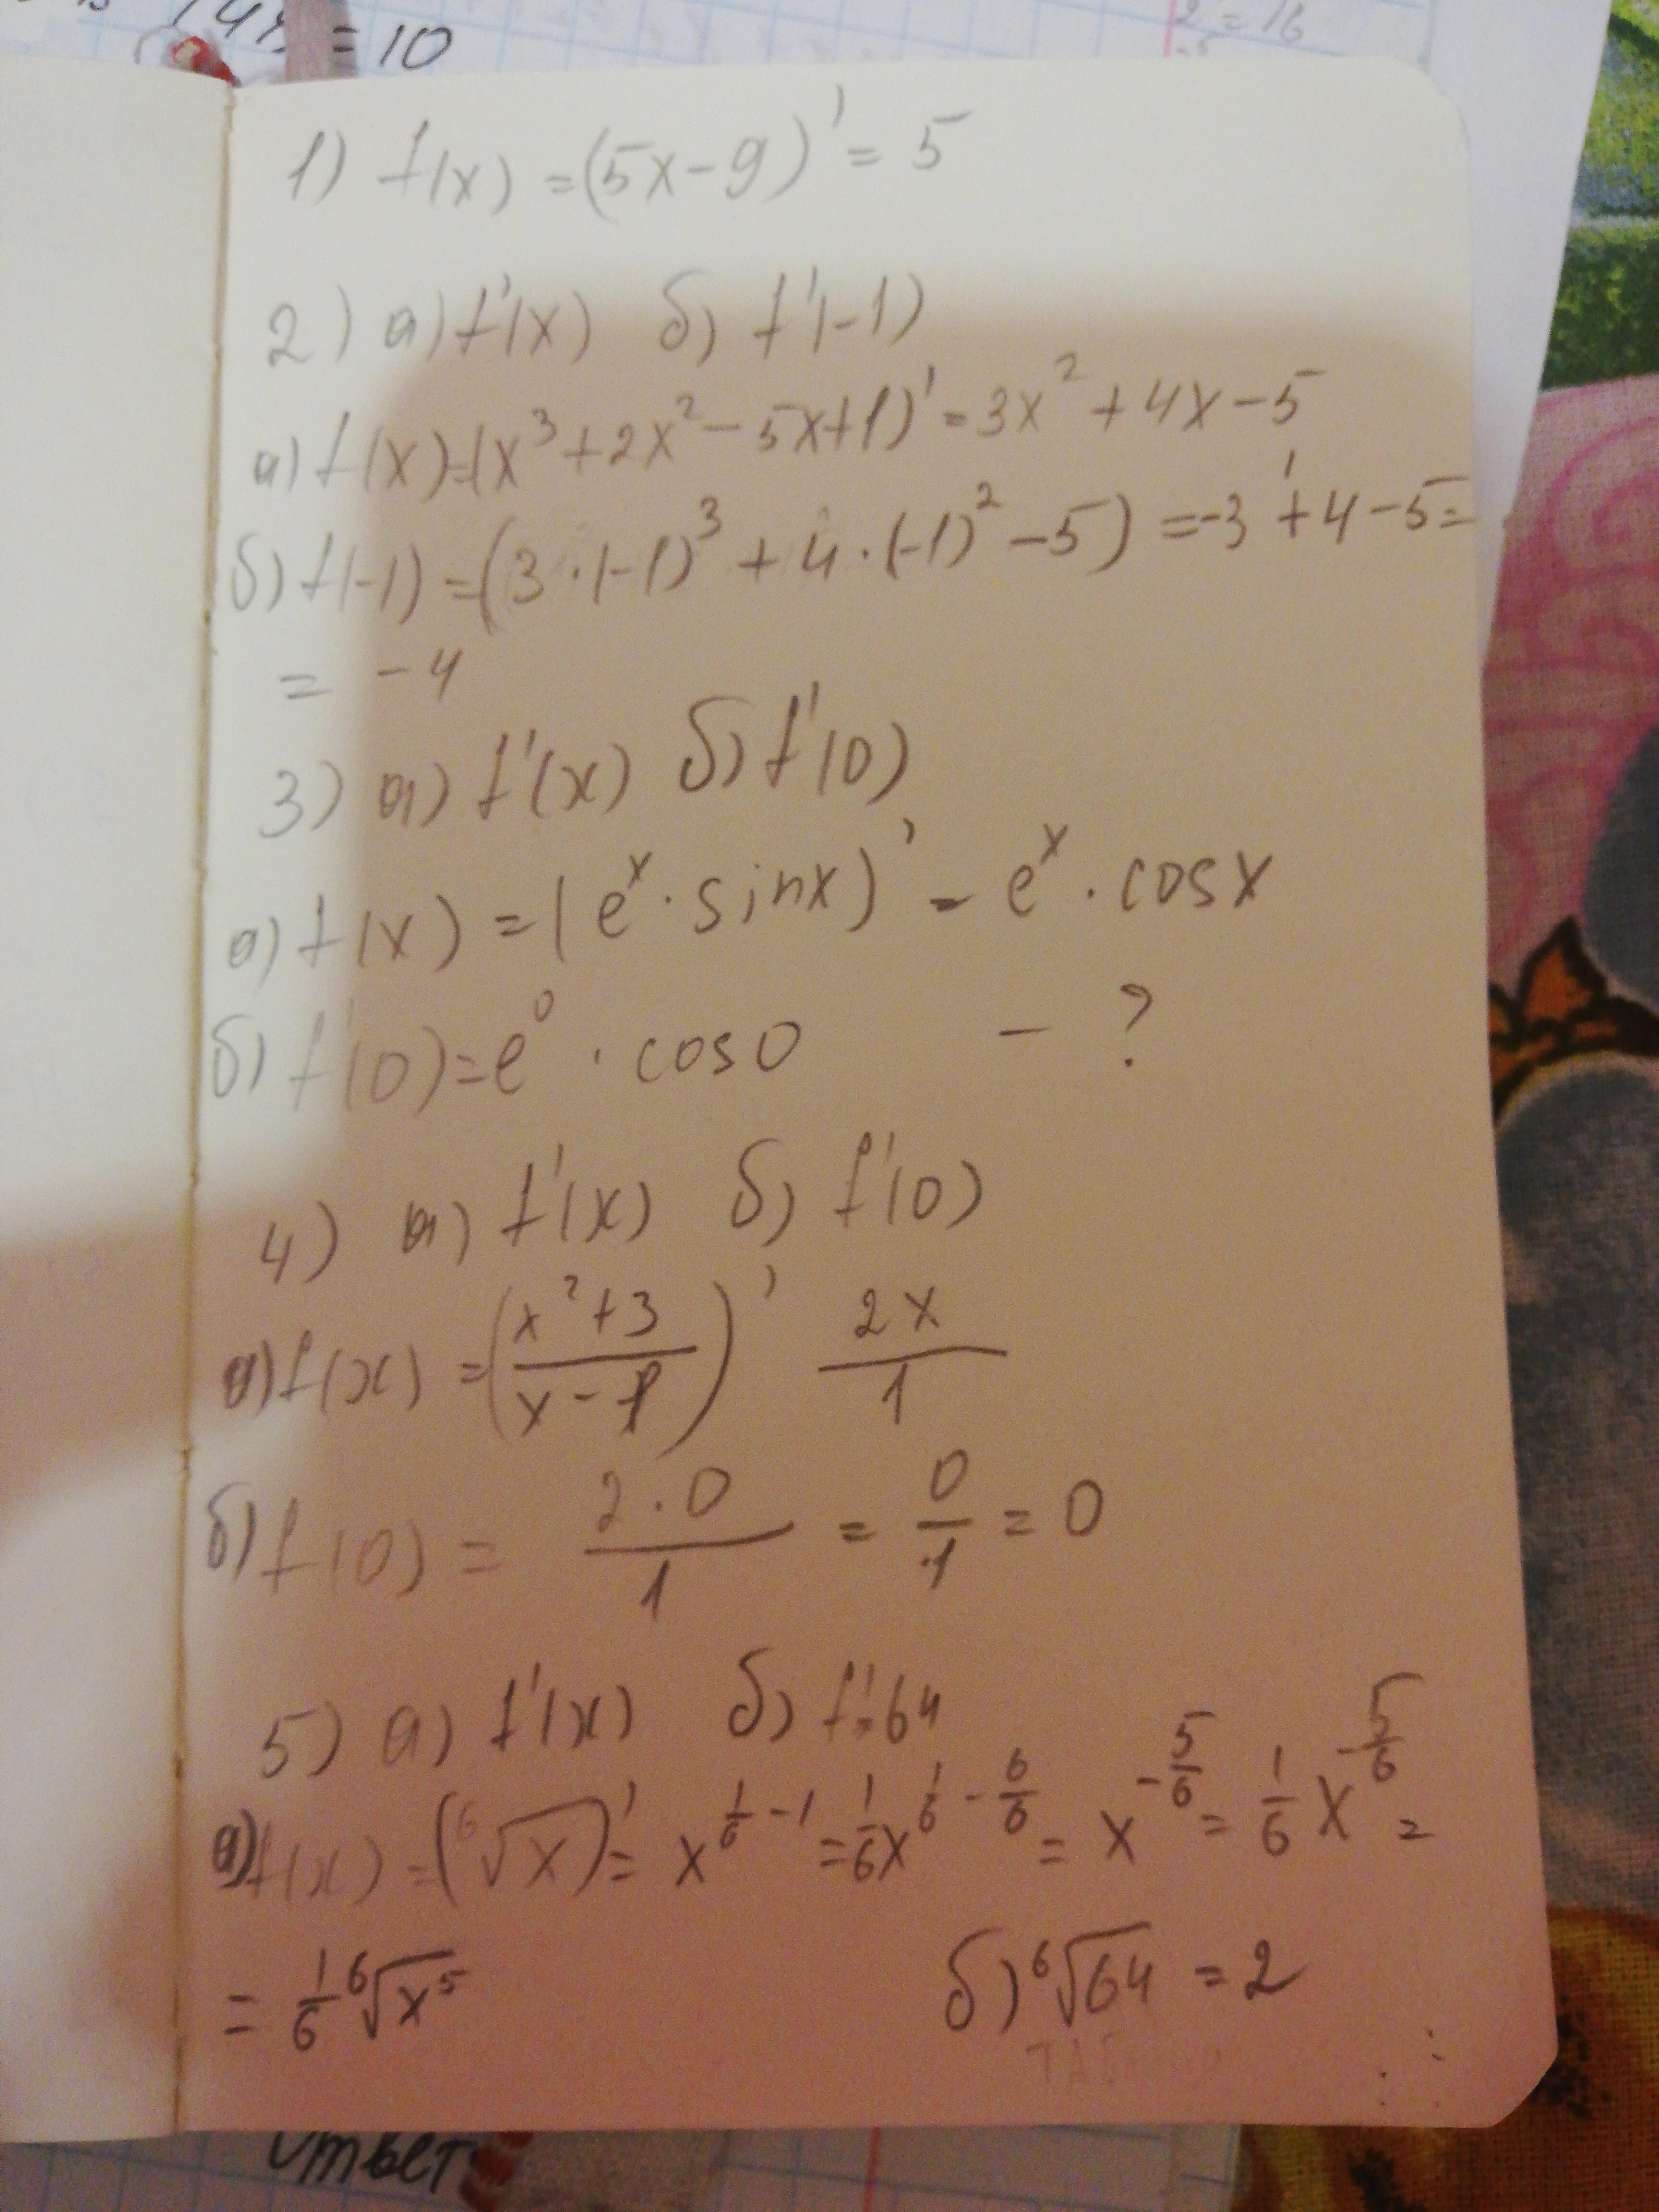 = 10
2 = 16
1) f(x) = (5x - 9)' = 5
2) а) f'(x) б) f'(-1)
а) f(x) = (x³ + 2x² - 5x + 1)' = 3x² + 4x - 5
б) f(-1) = (3 · (-1)³ + 4 · (-1)² - 5)' = -3 + 4 - 5 =
= -4
3) а) f'(x) б) f'(0)
а) f(x) = (eˣ · sinx)' = eˣ · cosx
б) f'(0) = e⁰ · cos0 - ?
4) а) f'(x) б) f'(0)
а) f(x) = ((x² + 3)/(x - 1))' 2x/1
б) f(0) = (2 · 0)/1 = 0/1 = 0
5) а) f'(x) б) f'64
а) f(x) = (⁶√x)' = x^(1/6 - 1) = 1/6 x^(1/6 - 6/6) = x^(-5/6) = 1/6 x^(-5/6) =
= 1/6 ⁶√x⁵ б) ⁶√64 = 2
Ответ